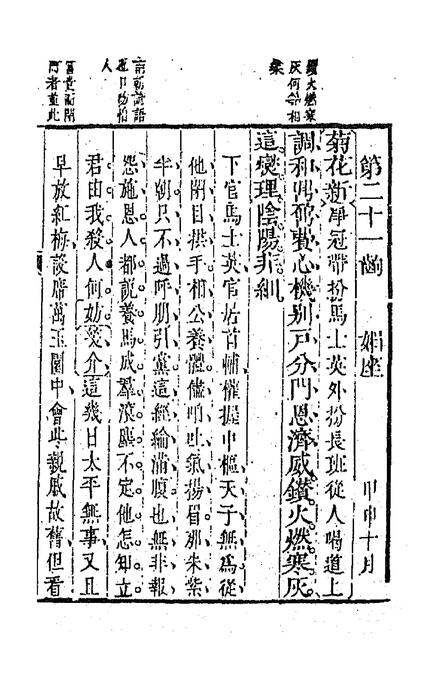 鑽火燃寒
灰何等相
業
人
第二十一齣 媚座 甲申十月
菊花新淨冠帶扮馬士英外扮長班從人喝道上
調和鼎鼐費心機別戶分門恩濟威鑽火燃寒灰
這燮理陰陽非細
下官馬士英官居首輔權握中樞天子無爲從
他閉目拱手相公養體儘咱吐氣揚眉那朱紫
半朝只不過呼朋引黨這經綸滿腹也無非報
怨施恩人都說養馬成羣滾塵不定他怎知立
君由我殺人何妨笑介這幾日太平無事又且
早放紅梅設席萬玉園中會些親戚故舊但看